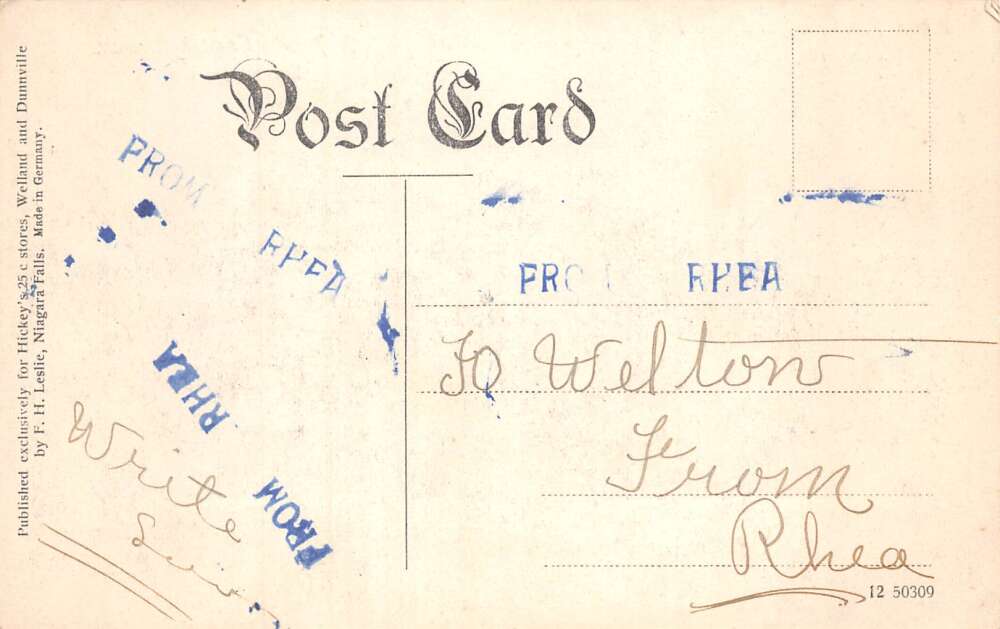 Post Card
Published exclusively for Hickey's 25 c stores, Welland and Dunnville
by F. H. Leslie, Niagara Falls. Made in Germany.
FROM
RHEA
RHEA
FROM
Write
FRO RHEA
To Welton
From
Rhea
12 50309